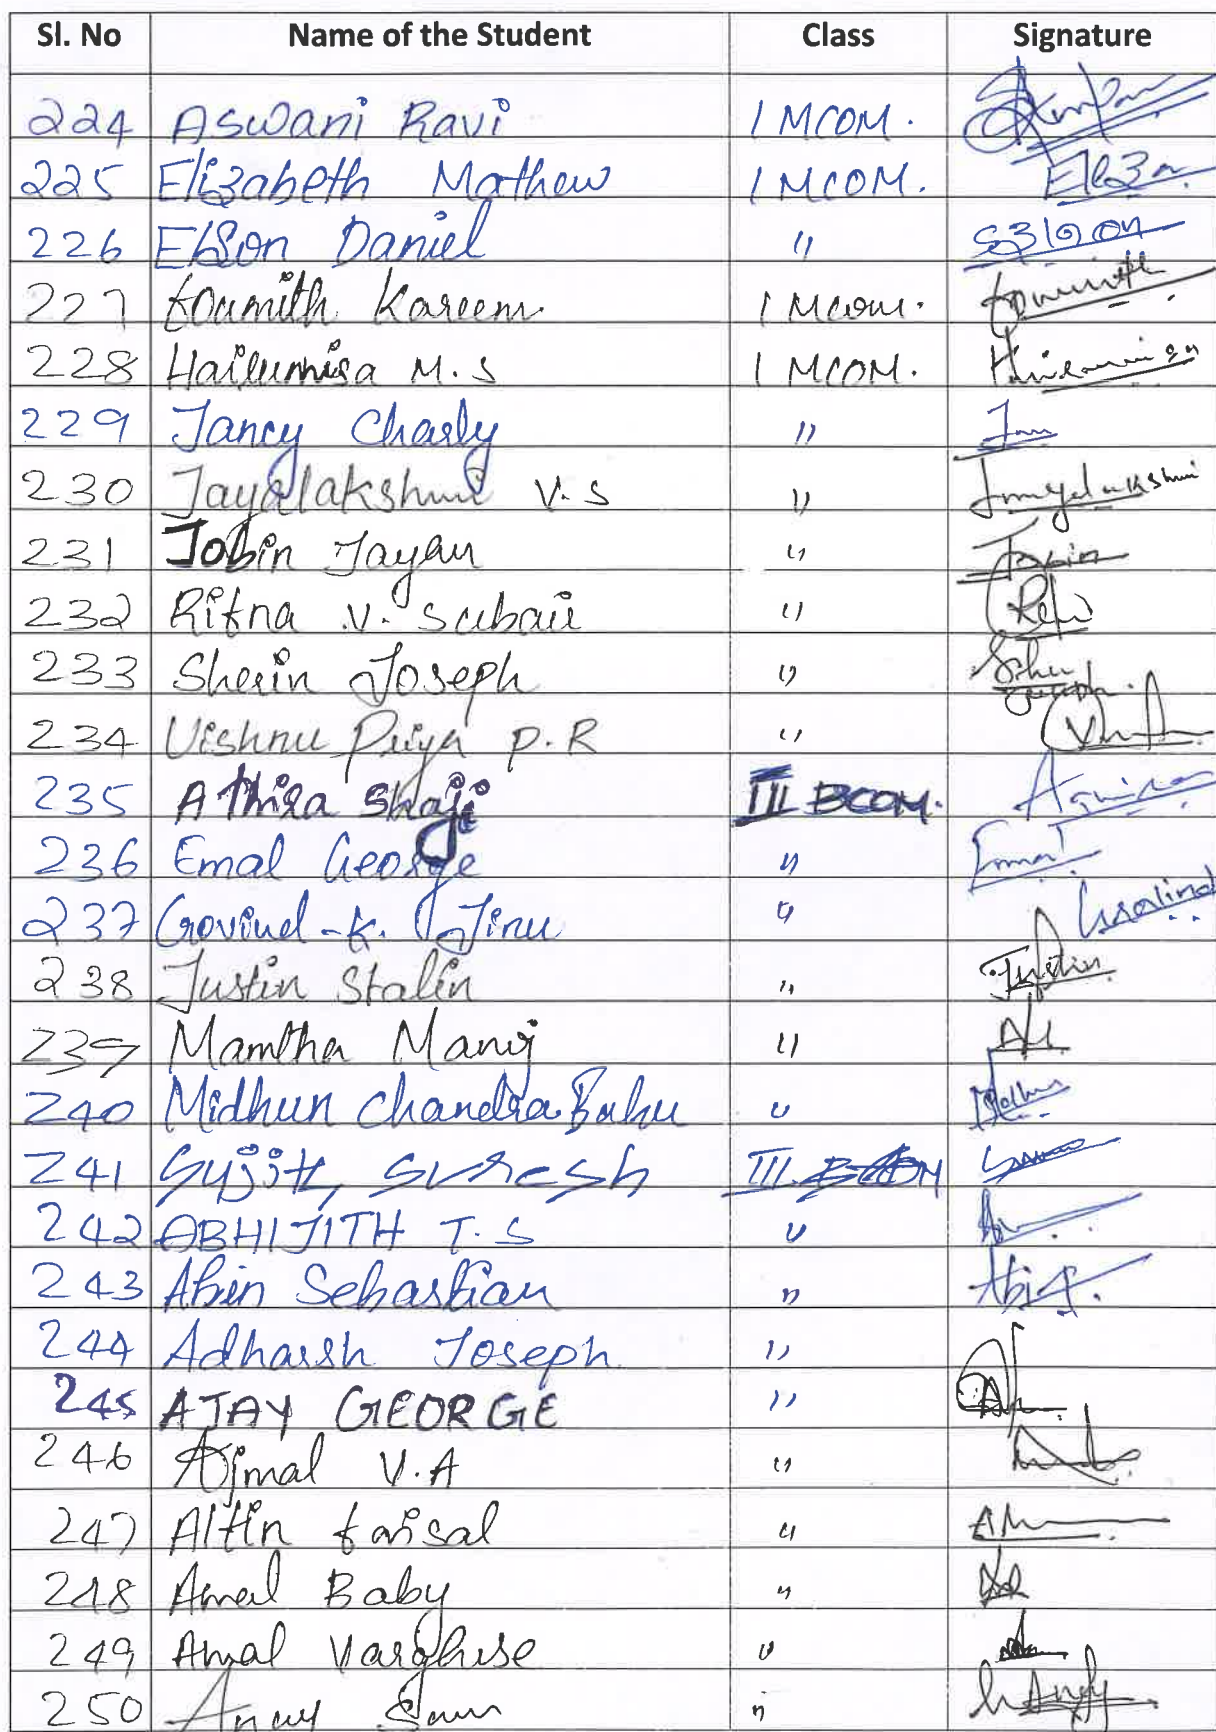 Sl. No Name of the Student Class Signature
224 Aswani Ravi I MCOM.
225 Elizabeth Mathew I MCOM. Eliza
226 Elson Daniel "
227 Kareem I Mcom.
228 M.S I MCOM.
229 Jancy Charly " Jan
230 Jayalakshmi V.S " Jayalakshmi
231 Jobin Jayan " Jobin
232 Rifna V. "
233 Sherin Joseph "
234 Vishnu Priya P.R "
235 Athira Shaji III BCOM.
236 Emal George " Emal
237 Govind K. Jinu "
238 Justin Stalin " Justin
239 Mamtha Manoj "
240 Midhun Chandra Babu "
241 Sujith Suresh III BCOM
242 ABHIJITH T.S "
243 Abin Sebastian "
244 Adharsh Joseph "
245 AJAY GEORGE "
246 Ajmal V.A "
247 Altin faisal "
248 Amal Baby "
249 Amal Varghese "
250 "